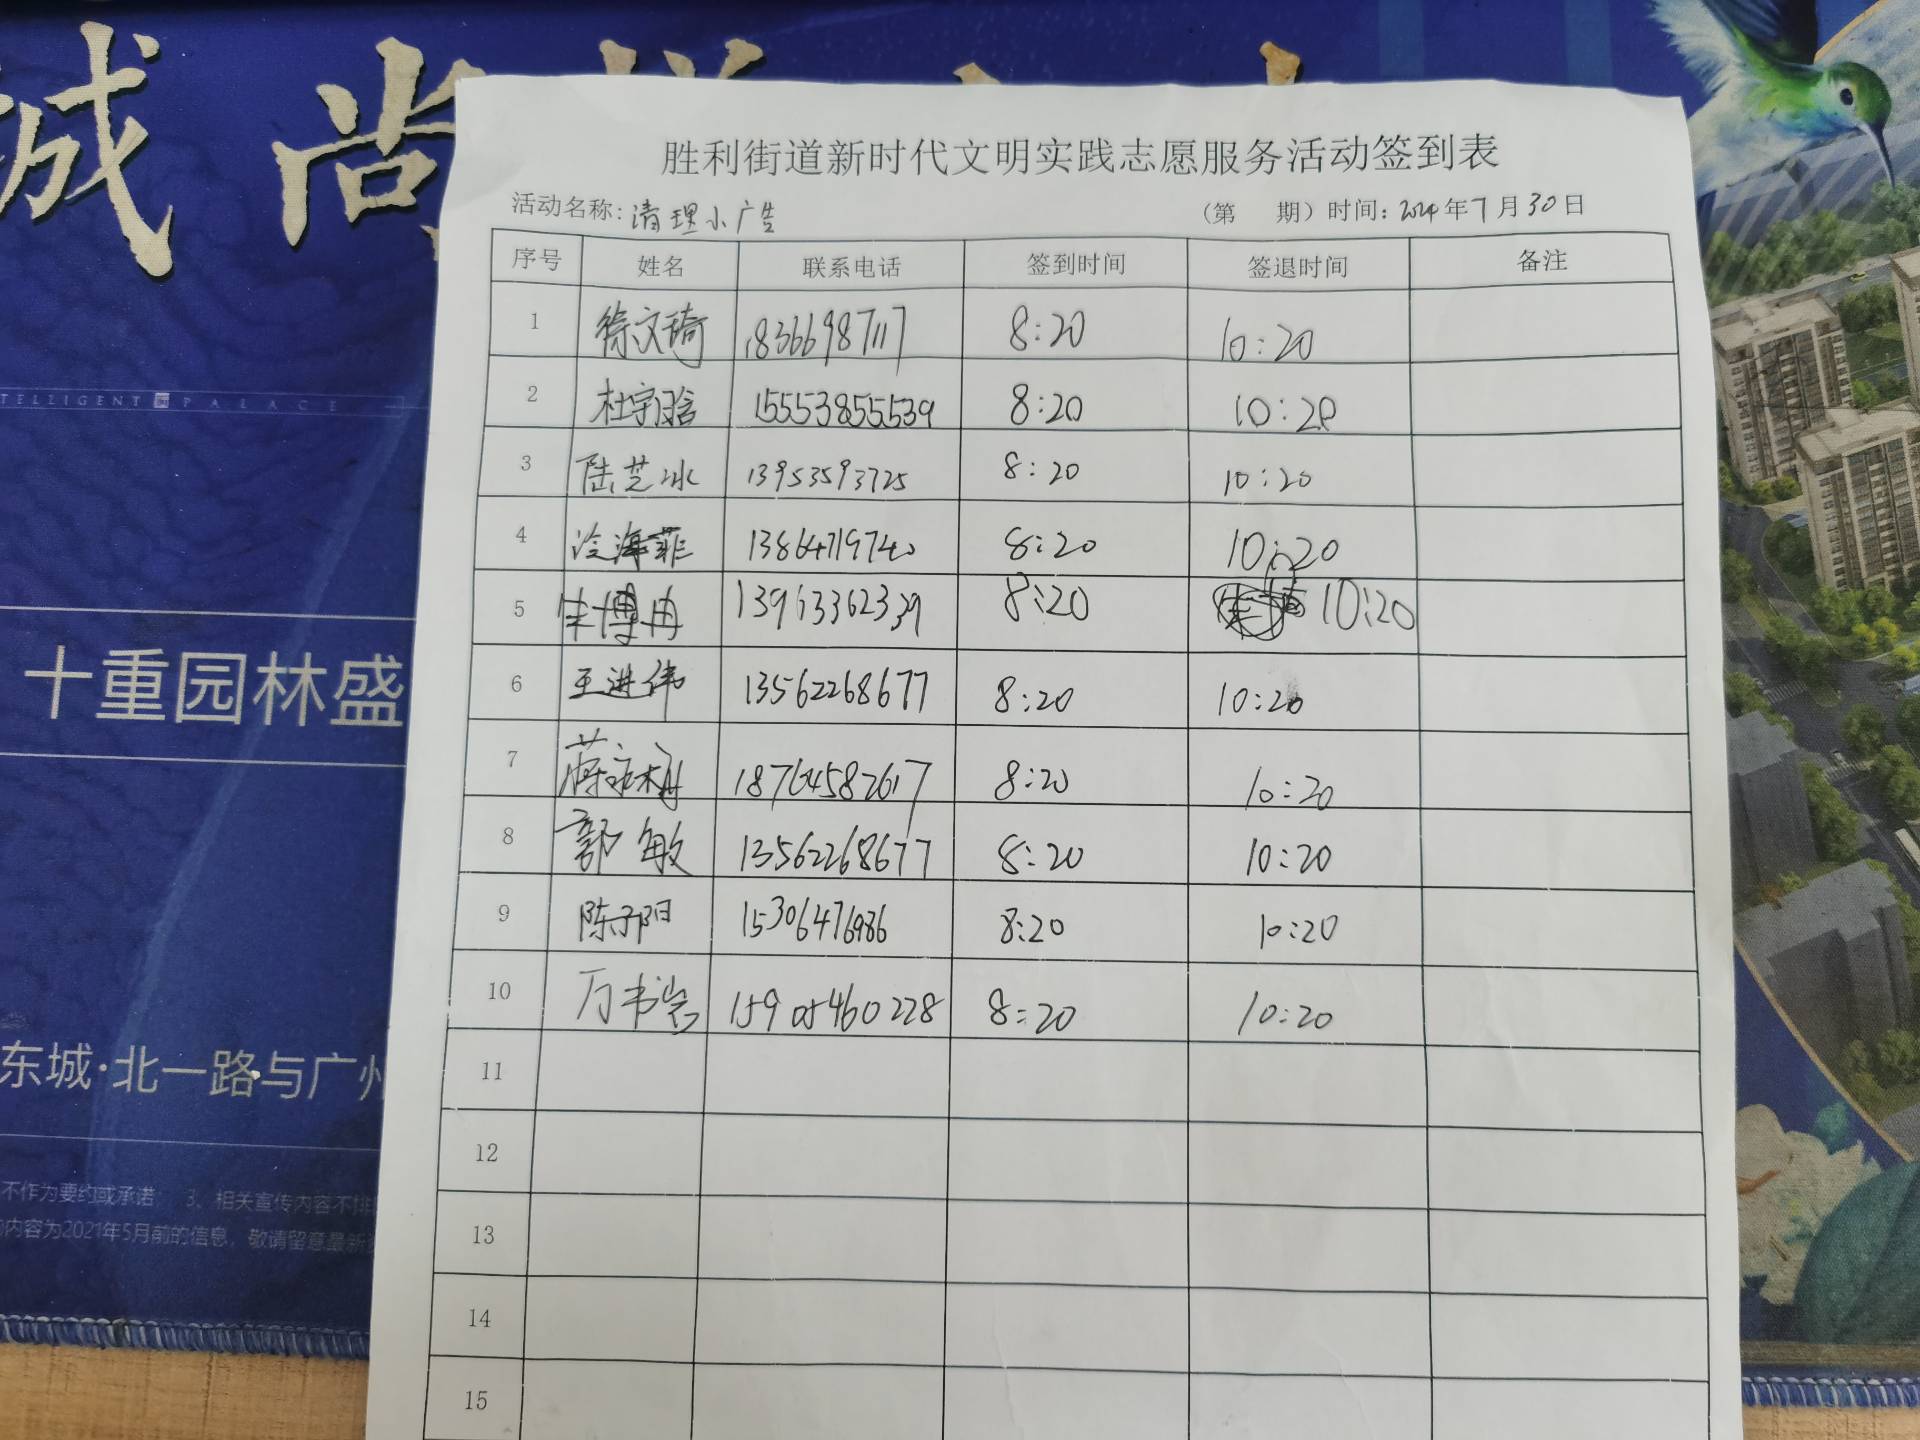 城 尚
TELLIGENT PALACE
十重园林盛
东城·北一路与广州
不作为要约或承诺； 3、相关宣传内容不排
内容为2021年5月前的信息，敬请留意最新
胜利街道新时代文明实践志愿服务活动签到表
活动名称：清理小广告 （第 期）时间：2024年7月30日
序号 姓名 联系电话 签到时间 签退时间 备注
1 徐文琦 18366987117 8:20 10:20
2 杜宇晗 15553855539 8:20 10:20
3 陆芝冰 13953593725 8:20 10:20
4 冷海菲 13864719740 8:20 10:20
5 朱博冉 13963362339 8:20 10:20
6 王进伟 13562268677 8:20 10:20
7 蒋 18764582617 8:20 10:20
8 郭敏 13562268677 8:20 10:20
9 陈子阳 15306476986 8:20 10:20
10 万书岩 15905460228 8:20 10:20
11
12
13
14
15